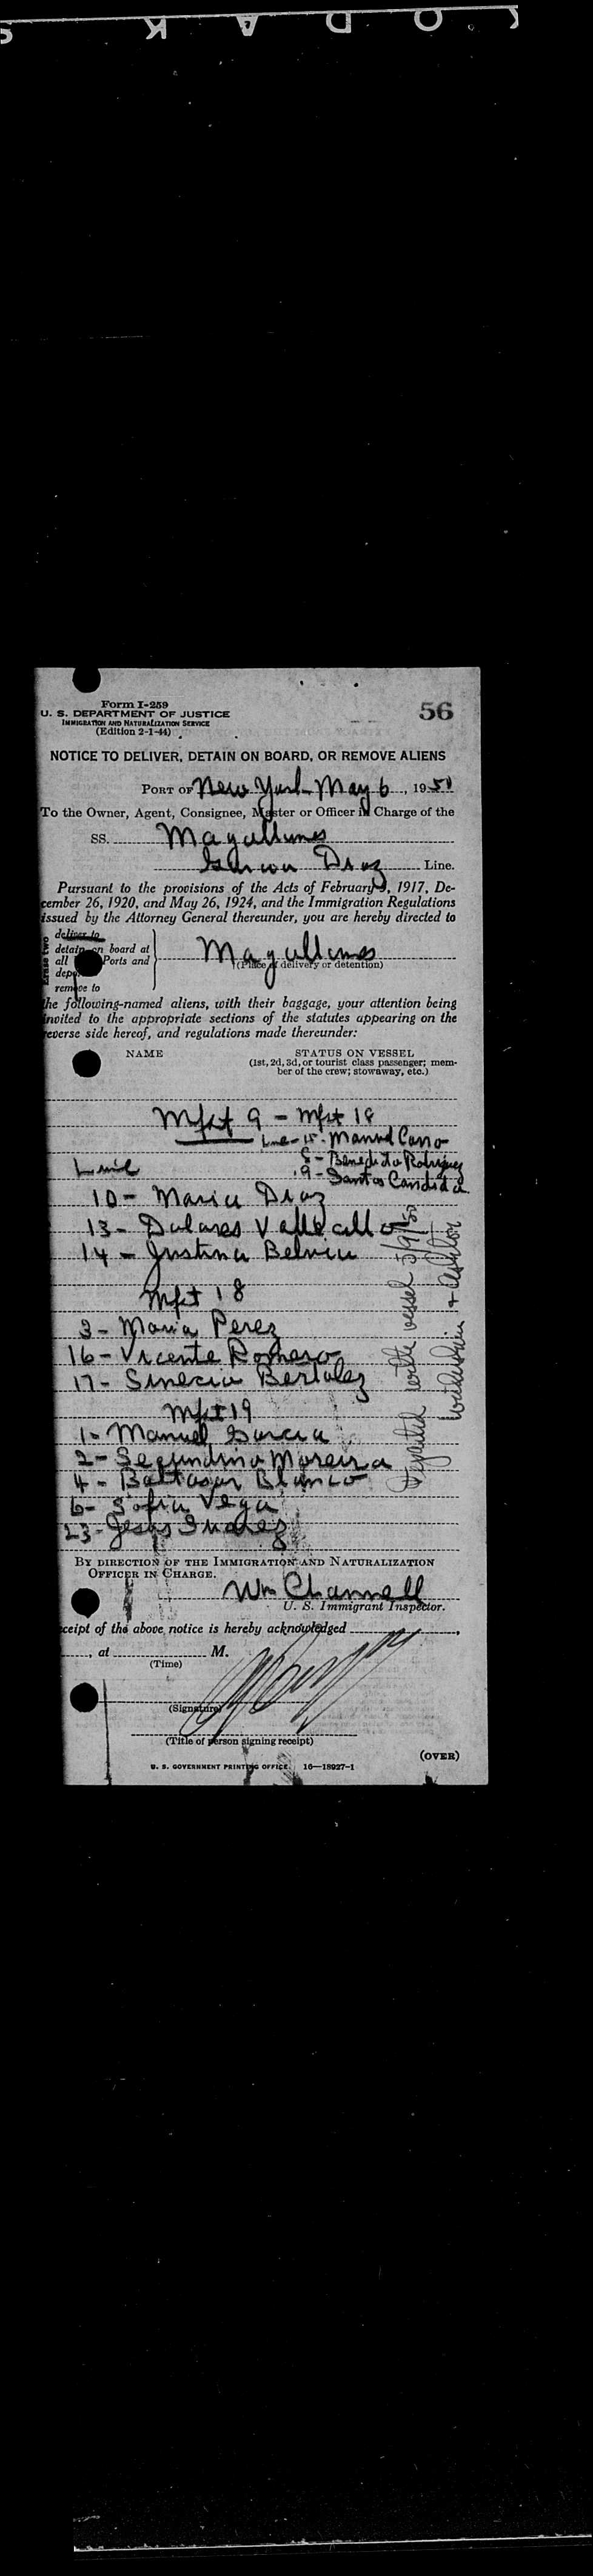 KODAK S
Form I-259
U. S. DEPARTMENT OF JUSTICE
IMMIGRATION AND NATURALIZATION SERVICE
(Edition 2-1-44)
56
NOTICE TO DELIVER, DETAIN ON BOARD, OR REMOVE ALIENS
PORT OF New York May 6, 1950
To the Owner, Agent, Consignee, Master or Officer in Charge of the
SS. Magallanes
Garcia Diaz Line.
Pursuant to the provisions of the Acts of February 5, 1917, De-
cember 26, 1920, and May 26, 1924, and the Immigration Regulations
issued by the Attorney General thereunder, you are hereby directed to
Erase two
deliver to
detain on board at
all Ports and
remove to
Magallanes
(Place of delivery or detention)
the following-named aliens, with their baggage, your attention being
invited to the appropriate sections of the statutes appearing on the
reverse side hereof, and regulations made thereunder:
NAME
STATUS ON VESSEL
(1st, 2d, 3d, or tourist class passenger; mem-
ber of the crew; stowaway, etc.)
Mfst 9 - Mfst 18
Manuel Cano
8 - Benedicta Rodriguez
9 - Santos Candida
Line
10 - Maria Diaz
13 - Dolores Vallecallo
14 - Justina
Mfst 18
3 - Maria Perez
16 - Vicente Romero
17 - Sinecio Bertolez
Mfst 19
1 - Manuel Garcia
2 - Segundino Moreira
4 - Baltasar Blanco
6 - Sofia Vega
23 - Jesus Suarez
Departed with vessel 5/9/50
BY DIRECTION OF THE IMMIGRATION AND NATURALIZATION
OFFICER IN CHARGE.
Wm Channell
U. S. Immigrant Inspector.
ceipt of the above notice is hereby acknowledged
, at M.
(Time)
(Signature)
(Title of person signing receipt)
(OVER)
U. S. GOVERNMENT PRINTING OFFICE 16—18927-1